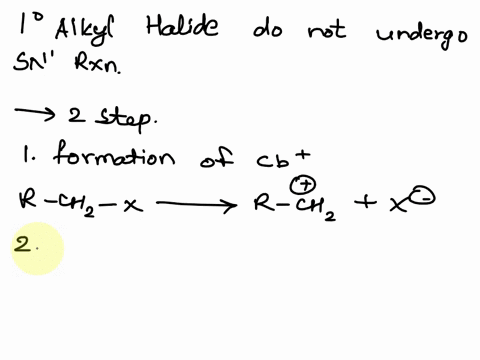 1° Alkyl Halide do not undergo
SN" Rxn.
→ 2 step.
1. formation of Cb⁺
R-CH₂-X ⟶ R-CH₂⊕ + X⊖
2.